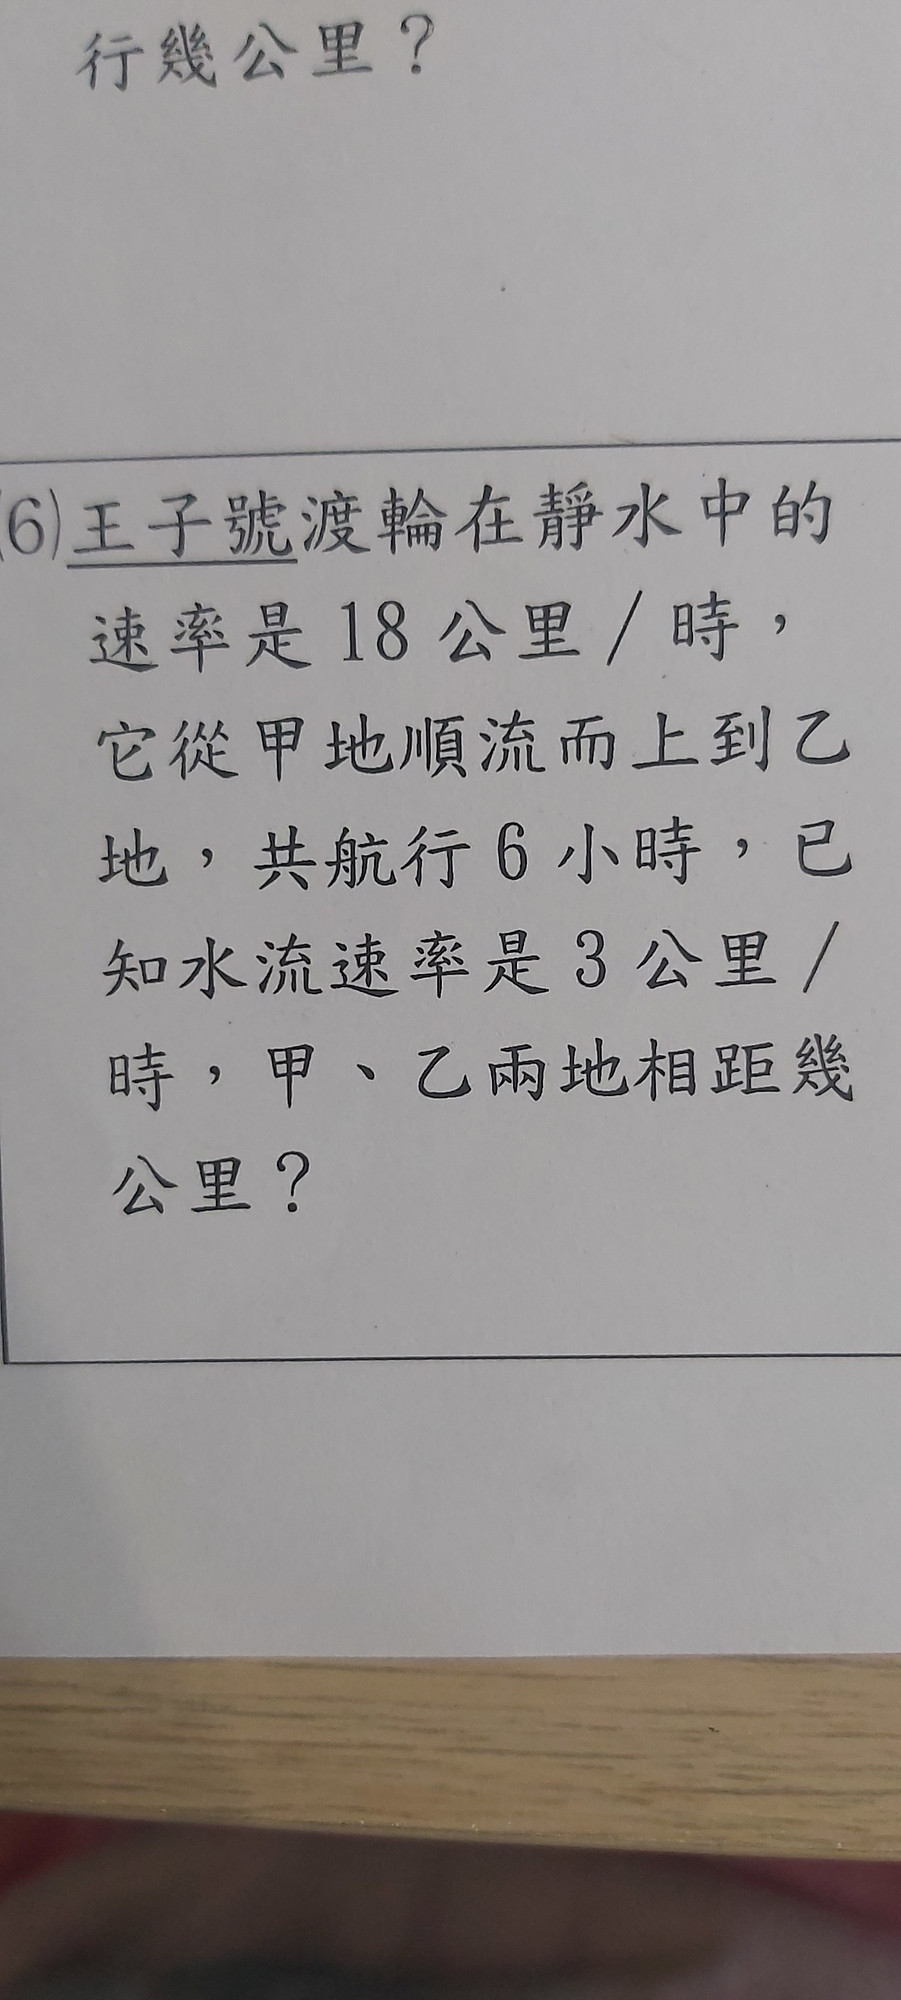 行幾公里？
(6)王子號渡輪在靜水中的
速率是18公里/時，
它從甲地順流而上到乙
地，共航行6小時，已
知水流速率是3公里/
時，甲、乙兩地相距幾
公里？